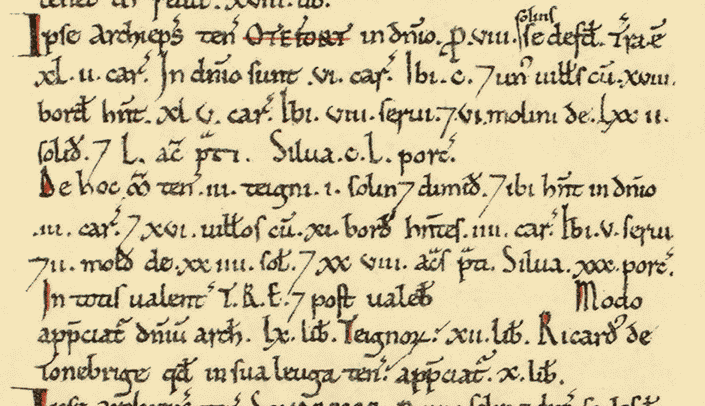 Ipse Archiep̄s ten̄ OTEFORT in dn̄io. ꝑ .viii. solins se defd̄. Tr̄a .ē.
xl. ii. car̄. In dn̄io sunt .vi. car̄. Ibi .c. ⁊ un' uill̄s cū .xviii.
bord̄ hn̄t. xl v. car̄. Ibi. viii. serui. ⁊ vi. molini de. lxx ii.
solid̄. ⁊ L. ac̄ p̄ti. Silua .c.L. porc̄.
De hoc m̄ ten̄ .iii. teigni .i. solin ⁊ dimid̄. ⁊ ibi hn̄t in dn̄io
.iii. car̄. ⁊ xvi. uill̄os cū .xi. bord̄ hn̄tes .iiii. car̄. Ibi .v. serui
⁊ ii. mold̄ de .xx iiii. sol̄. ⁊ xx viii. ac̄s p̄ti. Silua .xxx. porc̄.
In totis ualent' T.R.E. ⁊ post valeb̄ Modo
app̄ciat̄ dn̄iū arch̄. lx. lib̄. Teignoꝝ xii. lib̄. Ricard' de
Tonebrige qd̄ in sua leuga ten̄. app̄ciat̄ .x. lib̄.